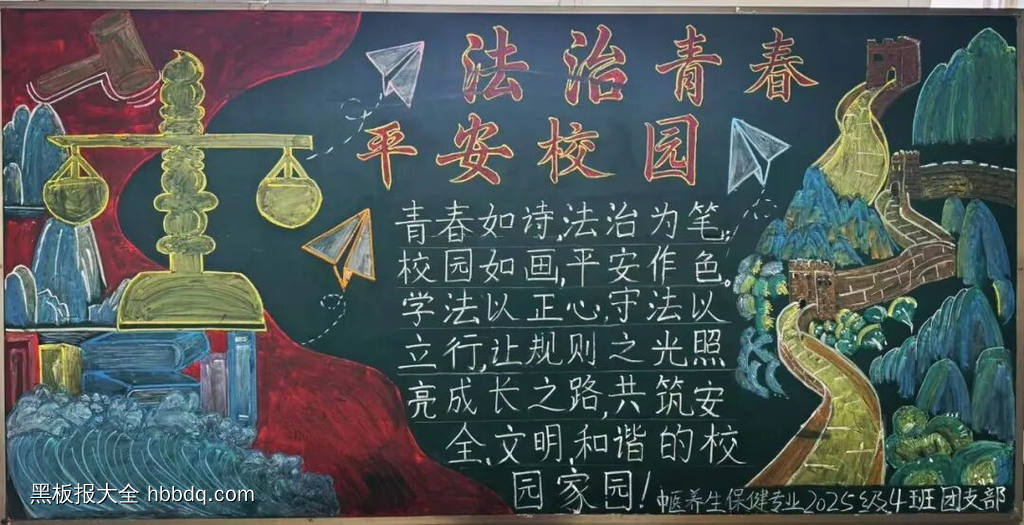 法治青春
平安校园
青春如诗,法治为笔;
校园如画,平安作色。
学法以正心,守法以
立行,让规则之光照
亮成长之路,共筑安
全、文明、和谐的校
园家园!
中医养生保健专业2025级4班团支部
黑板报大全 hbbdq.com